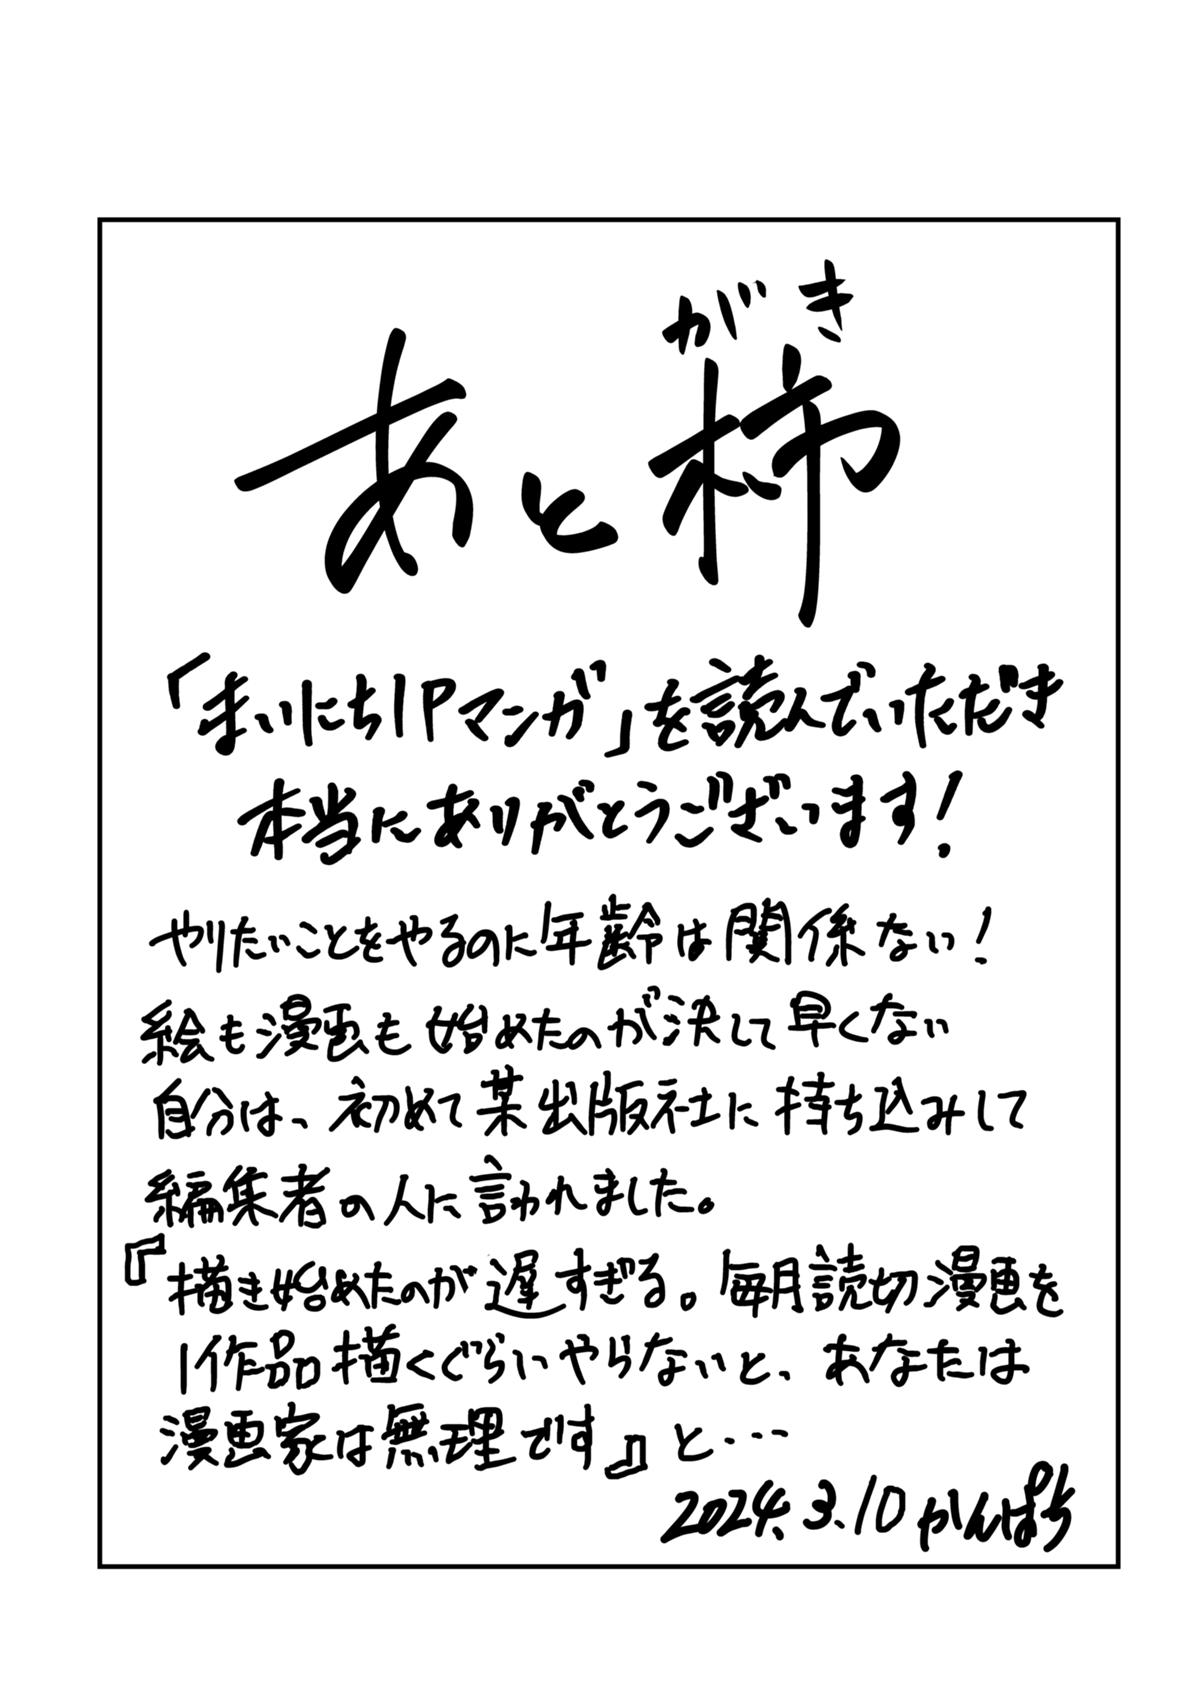 がき
あと柿
「まいにち1Pマンガ」を読んでいただき
本当にありがとうございます!
やりたいことをやるのに年齢は関係ない!
絵も漫画も始めたのが決して早くない
自分は、初めて某出版社に持ち込みして
編集者の人に言われました。
『描き始めたのが遅すぎる。毎月読切漫画を
1作品描くぐらいやらないと、あなたは
漫画家は無理です』と…
2024.3.10 かんぱち